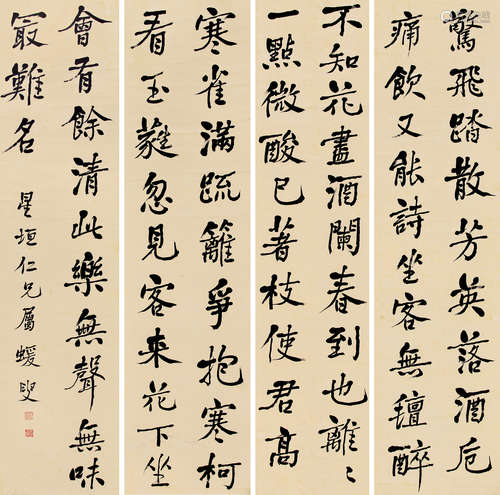 驚飛踏散芳英落酒卮
痛飲又能詩坐客無氊醉
不知花盡酒闌春到也離〻
一點微酸已著枝使君高
寒雀滿疏籬爭抱寒柯
看玉蕤忽見客來花下坐
會有餘清此樂無聲無味
㝡難名
星垣仁兄屬 蝯叟